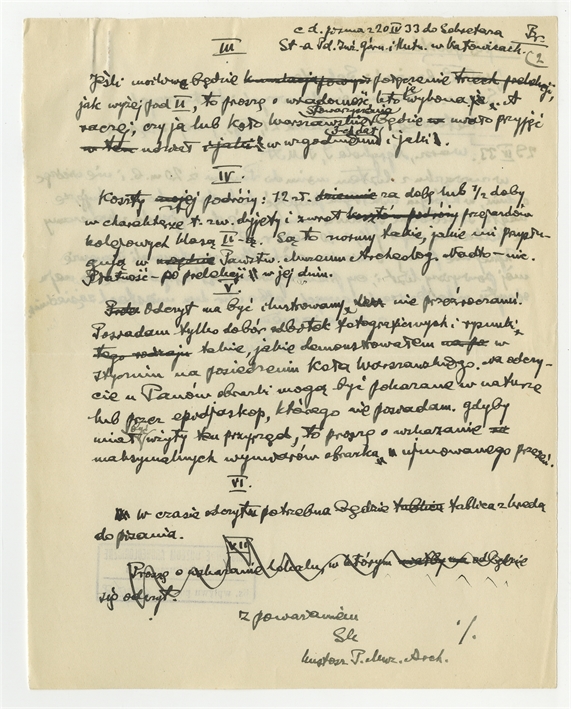 c d. pisma z 20 IV 33 do Sekretarza
St-a Pol. Inż. Górn. i Hutn. w Katowicach.
2
III
Jeśli możliwe będzie połączenie trzech prelekcji,
jak wyżej pod II, to proszę o wiadomość, kto je wykona, A
raczej, czy ja lub Koło Warszawskie Towarzyszenia będzie miało przyjść
IV.
Koszty mojej podróży: 12 zł. dziennie za dobę lub 1/2 doby
w charakterze t. zw. dyjety i zwrot kosztów podróży przejazdów
kolejowych klasą II-ą. Są to normy takie, jakie mi przysłu-
gują w Państw. Muzeum Archeolog. Nadto - nic.
Płatność - po prelekcji w jej dniu.
V.
Odczyt ma być ilustrowany, lecz nie przeźroczami.
Posiadam tylko dobór odbitek fotograficznych i rysunki,
tego rodzaju takie, jakie demonstrowałem w
styczniu na posiedzeniu Koła Warszawskiego. Na odczy-
cie u Panów obrazki mogą być pokazane w naturze
lub przez epidjaskop, którego nie posiadam. Gdyby
miał być użyty ten przyrząd, to proszę o wskazanie
maksymalnych wymiarów obrazka, ujmowanego przezeń.
VI.
W czasie odczytu potrzebna będzie tablica tablica z kredą
do pisania.
VII
Proszę o wskazanie lokalu, w którym odbędzie
się odczyt.
Z poważaniem
Sk
·/.
kustosz P. Muz. Arch.